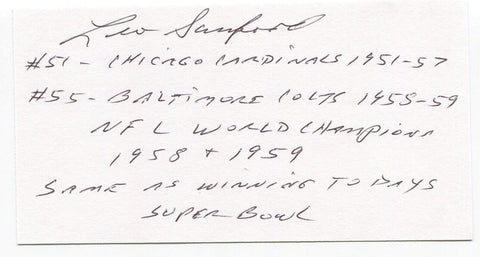 Leo Sanford
#51 - CHICAGO CARDINALS 1951-57
#55 - BALTIMORE COLTS 1958-59
NFL WORLD CHAMPIONS
1958 + 1959
SAME AS WINNING TODAYS
SUPER BOWL